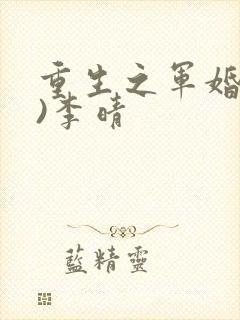 重生之軍婚
)李晴
藍精靈